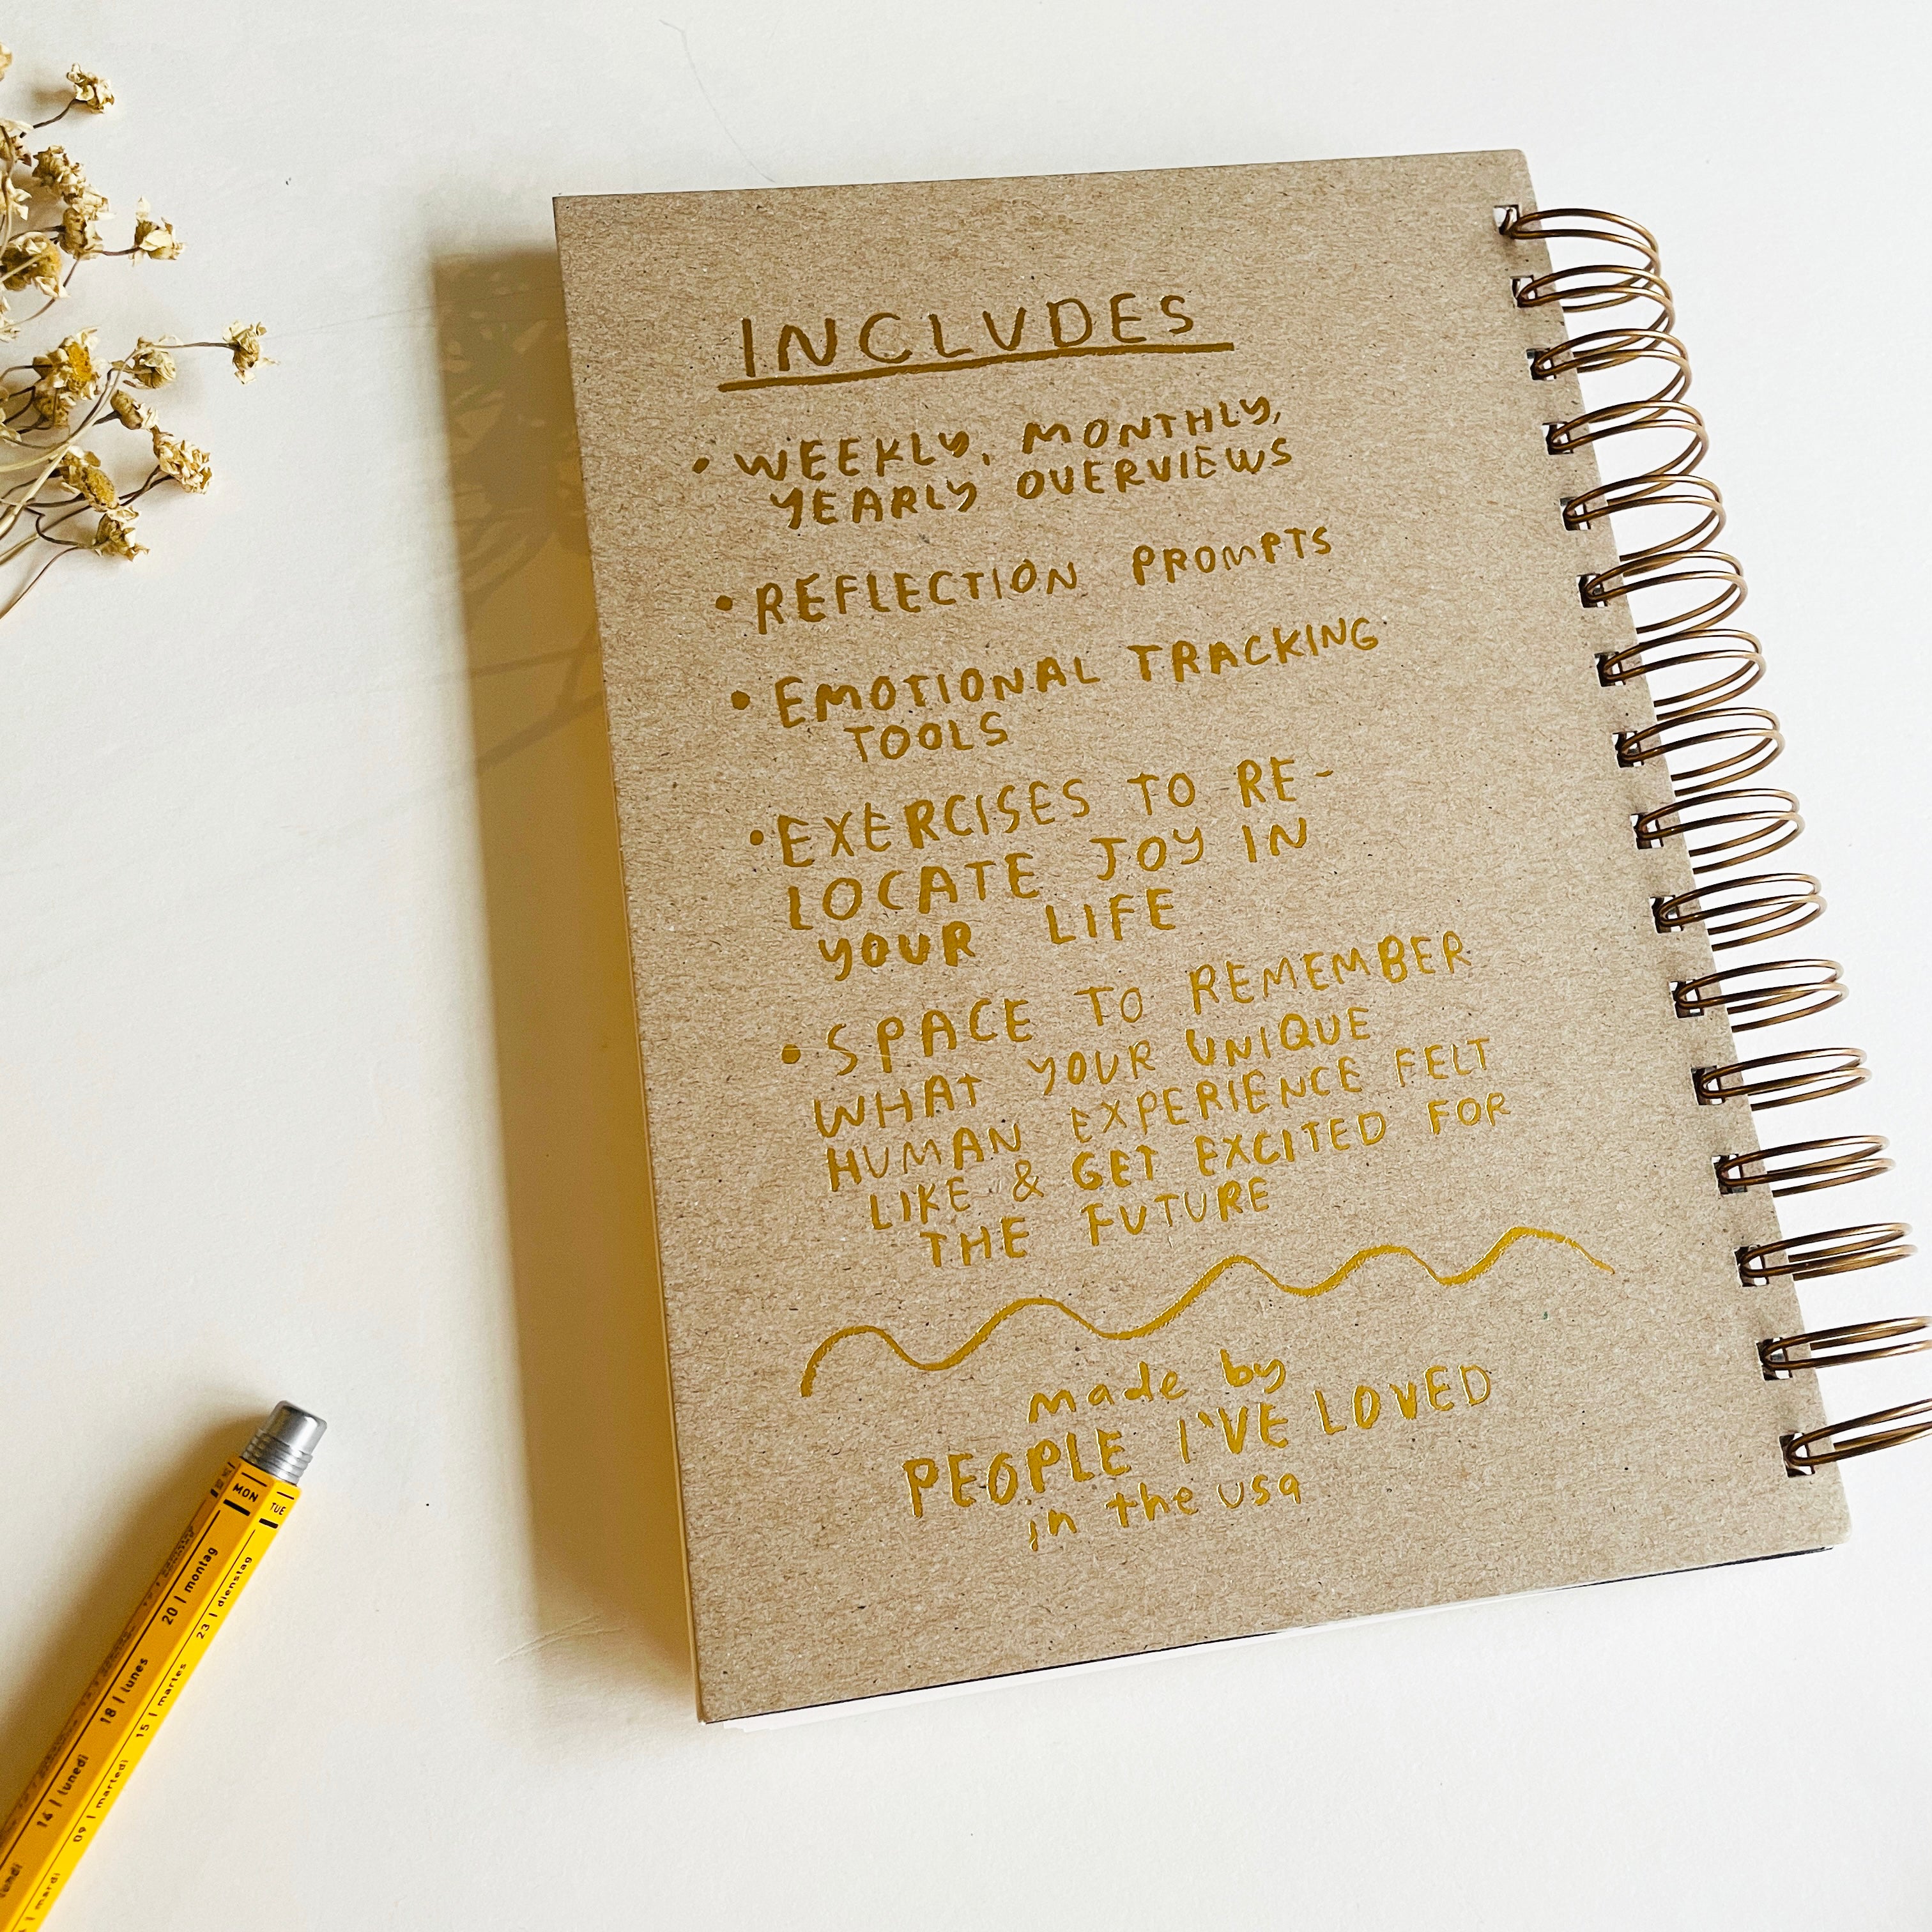 INCLUDES
• WEEKLY, MONTHLY,
YEARLY OVERVIEWS
• REFLECTION PROMPTS
• EMOTIONAL TRACKING
TOOLS
• EXERCISES TO RE-
LOCATE JOY IN
YOUR LIFE
• SPACE TO REMEMBER
WHAT YOUR UNIQUE
HUMAN EXPERIENCE FELT
LIKE & GET EXCITED FOR
THE FUTURE
made by
PEOPLE I'VE LOVED
in the usa
MON
TUE
14 | lunedi 18 | lunes 20 | montag
09 | martedi 15 | martes 23 | dienstag
mardi